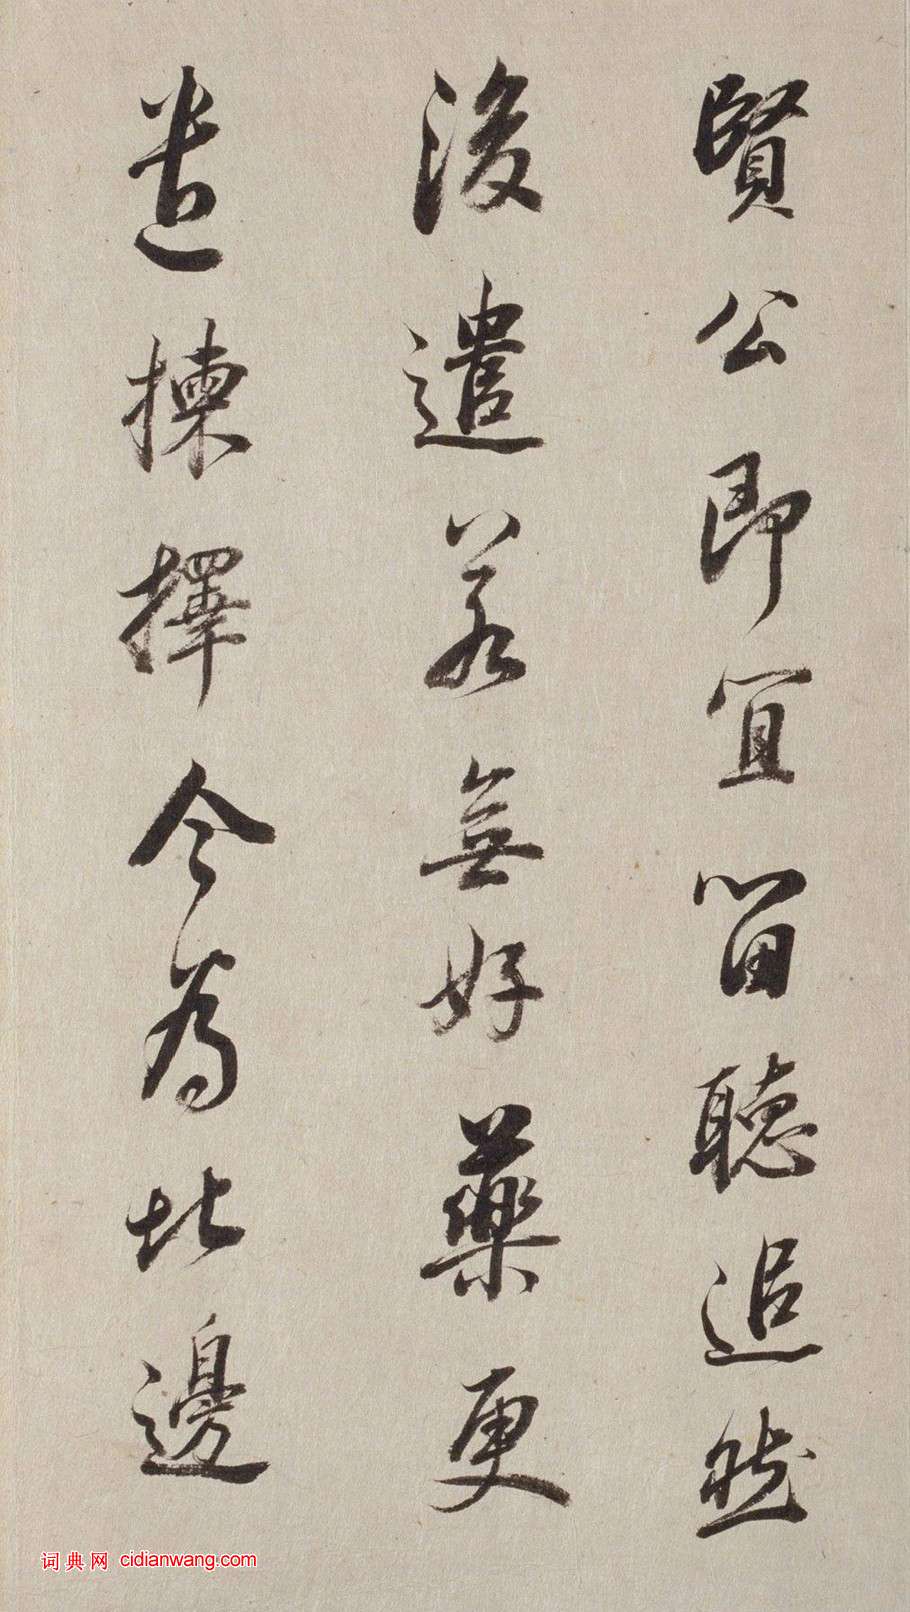 賢公即宜留聽追然
後遣若無好藥更
遣揀擇今為此邊
词典网 cidianwang.com